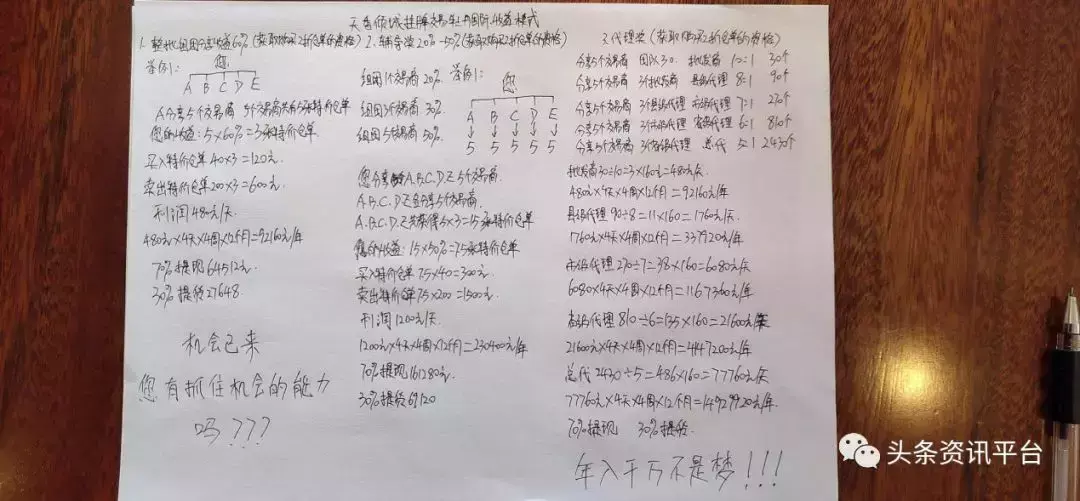 天香倾城挂牌交易 国际收益模式
1. 60%(获取购买2折仓单的资格)
举例1:
您
A B C D E
A分享5个交易商 5个交易商共有5张特价仓单
您的收益:5×60%=3张特价仓单
买入特价仓单40×3=120元
卖出特价仓单200×3=600元
利润480元/天
480元×4天×4周×12个月=92160元/年
70%提现64512元
30%提货27648
机会已来
您有抓住机会的能力
吗???
2. 辅导奖20%-50%(获取购买2折仓单的资格)
组团1个交易商 20%
举例1:
您
组团3个交易商 30%
A B C D E
组团5个交易商 50%
5 5 5 5 5
您分享A.B.C.D.E5个交易商
A.B.C.D.E各分享5个交易商
A.B.C.D.E共获得5×3=15张特价仓单
您的收益:15×50%=7.5张特价仓单
买入特价仓单7.5×40=300元
卖出特价仓单7.5×200=1500元
利润1200元/天
1200元×4天×4周×12个月=230400元/年
70%提现161280元
30%提货69120
3. 代理奖(获取购买2折仓单的资格)
分享5个交易商 团队30. 批发商 10=1 30个
分享5个交易商 3个批发商 县级代理 8=1 90个
分享5个交易商 3个县级代理 市级代理 7=1 270个
分享5个交易商 3个市级代理 省级代理 6=1 810个
分享5个交易商 3个省级代理 总代 5=1 2430个
批发商30÷10=3×160=480元/天
480元×4天×4周×12个月=92160元/年
县级代理90÷8=11×160=1760元/天
1760元×4天×4周×12个月=337920元/年
市级代理270÷7=38×160=6080元/天
6080×4天×4周×12个月=1167360元/年
省级代理810÷6=135×160=21600元/天
21600元×4天×4周×12个月=4147200元/年
总代2430÷5=486×160=77760元/天
77760元×4天×4周×12个月=14929920元/年
70%提现 30%提货
年入千万不是梦!!!
头条资讯平台